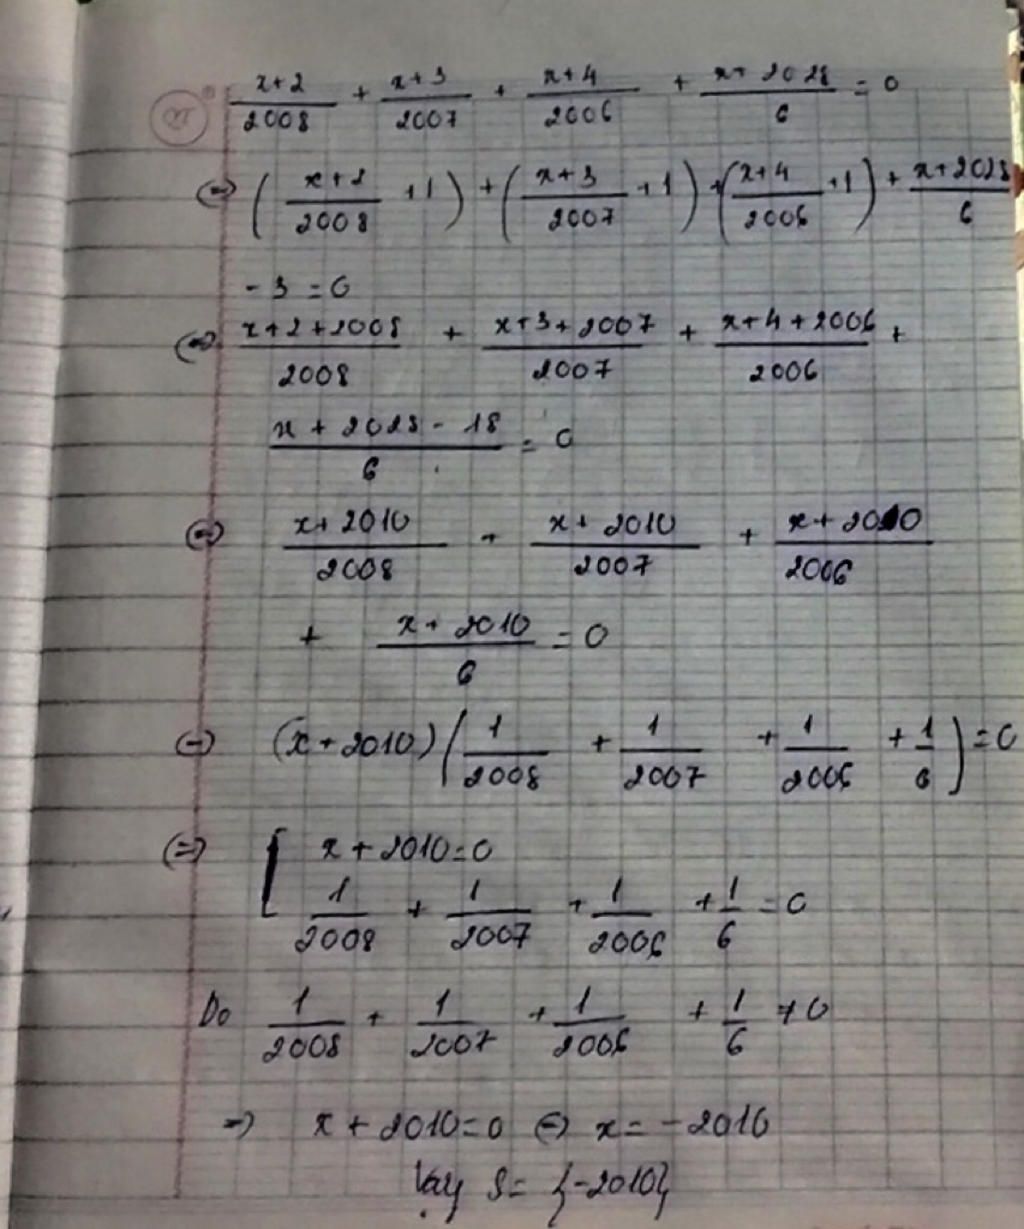 x+2/2008 + x+3/2007 + x+4/2006 + x+2028/6 = 0
⇔ (x+2/2008 + 1) + (x+3/2007 + 1) + (x+4/2006 + 1) + x+2028/6
- 3 = 0
⇔ x+2+2008/2008 + x+3+2007/2007 + x+4+2006/2006 +
x + 2028 - 18/6 = 0
⇔ x+2010/2008 + x+2010/2007 + x+2010/2006
+ x+2010/6 = 0
⇔ (x+2010)(1/2008 + 1/2007 + 1/2006 + 1/6) = 0
⇔ [ x+2010=0
1/2008 + 1/2007 + 1/2006 + 1/6 = 0
Do 1/2008 + 1/2007 + 1/2006 + 1/6 ≠ 0
⇒ x + 2010 = 0 ⇔ x = -2010
Vậy S = {-2010}